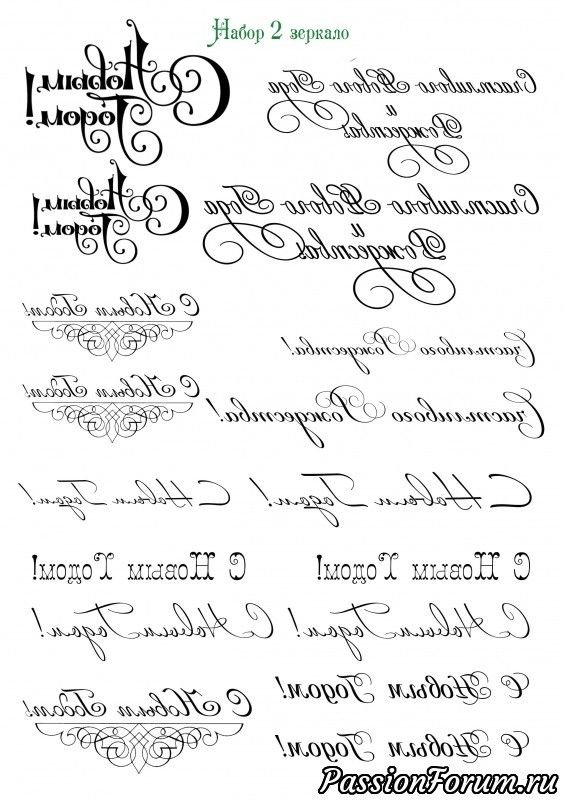 Набор 2 зеркало
С Новым
Годом!
Счастливого Нового Года
и
Рождества
С Новым
Годом!
Счастливого Нового Года
и
Рождества
С Новым Годом!
Счастливого Рождества!
С Новым Годом!
Счастливого Рождества!
С Новым Годом!
С Новым Годом!
С Новым Годом!
С Новым Годом!
С Новым Годом!
С Новым Годом!
С Новым Годом!
С Новым Годом!
С Новым Годом!
PassionForum.ru